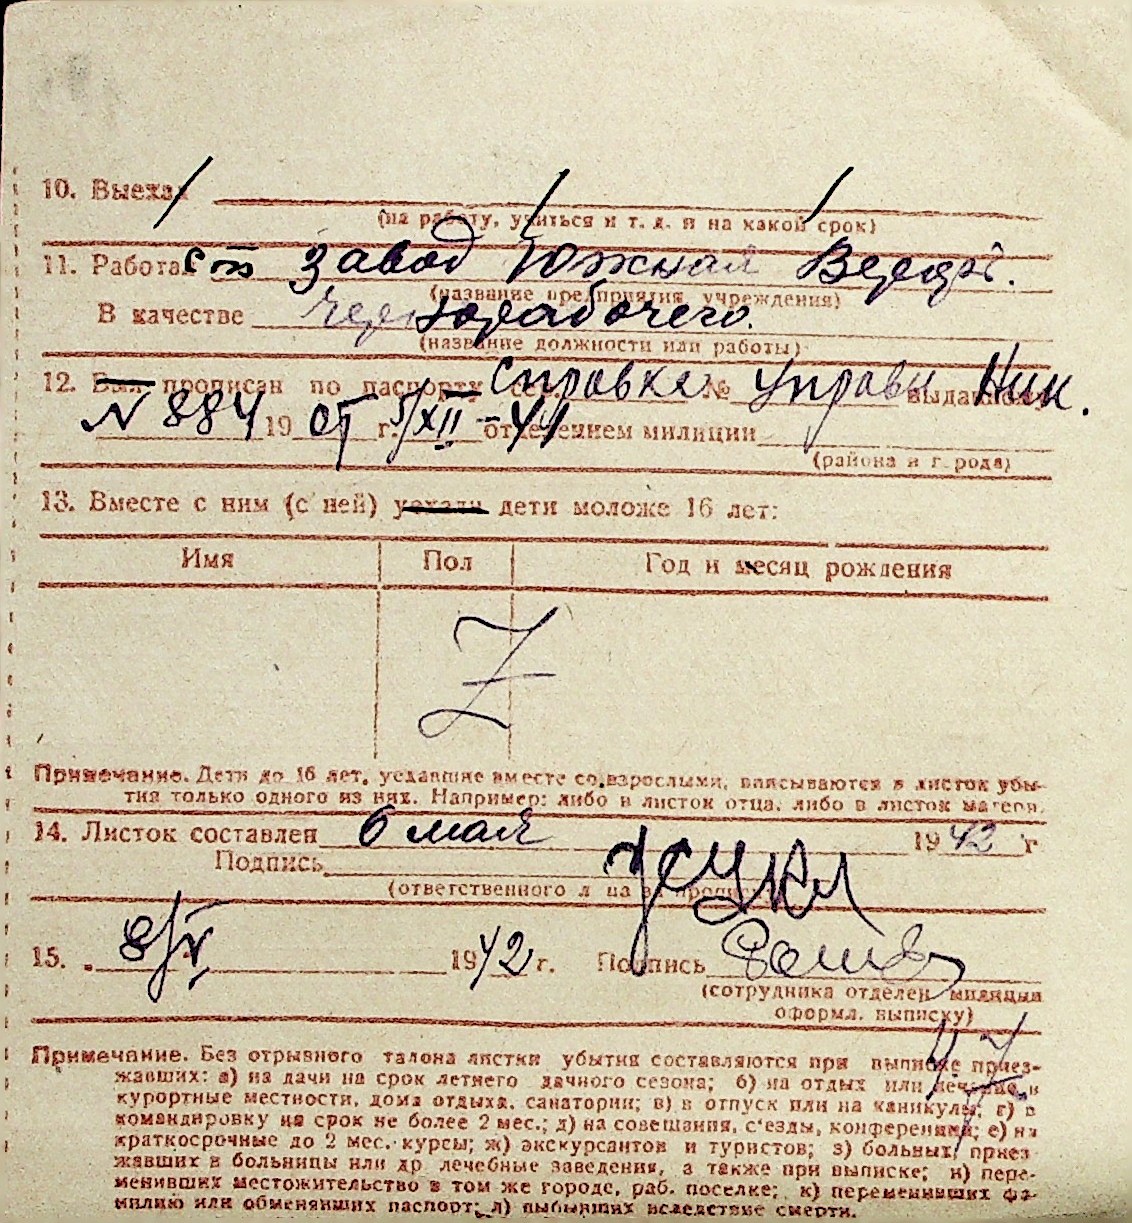 10. Выехал
(на работу, учиться и т. д. и на какой срок)
11. Работа завод Южная Верфь.
(название предприятия, учреждения)
В качестве чернорабочего.
(название должности или работы)
12. Был прописан по паспорту сер. справке № управы Ник. выданному
N 884 19 от г. 5/XII-41 отделением милиции
(района и города)
13. Вместе с ним (с ней) уехали дети моложе 16 лет:
Имя Пол Год и месяц рождения
Z
Примечание. Дети до 16 лет, уехавшие вместе со взрослыми, вписываются в листок убы-
тия только одного из них. Например: либо в листок отца, либо в листок матери.
14. Листок составлен 6 мая 1942 г
Подпись
(ответственного лица за прописку)
15. 8/V 1942 г. Подпись
(сотрудника отделен. милиции
оформл. выписку)
Примечание. Без отрывного талона листки убытия составляются при выписке приез-
жавших: а) на дачи на срок летнего дачного сезона; б) на отдых или лечение в
курортные местности, дома отдыха, санатории; в) в отпуск или на каникулы; г) в
командировку на срок не более 2 мес.; д) на совещания, съезды, конференции; е) на
краткосрочные до 2 мес. курсы; ж) экскурсантов и туристов; з) больных, приез-
жавших в больницы или др лечебные заведения, а также при выписке; и) пере-
менивших местожительство в том же городе, раб. поселке; к) переменивших фа-
милию или обменявших паспорт; л) выбывших вследствие смерти.